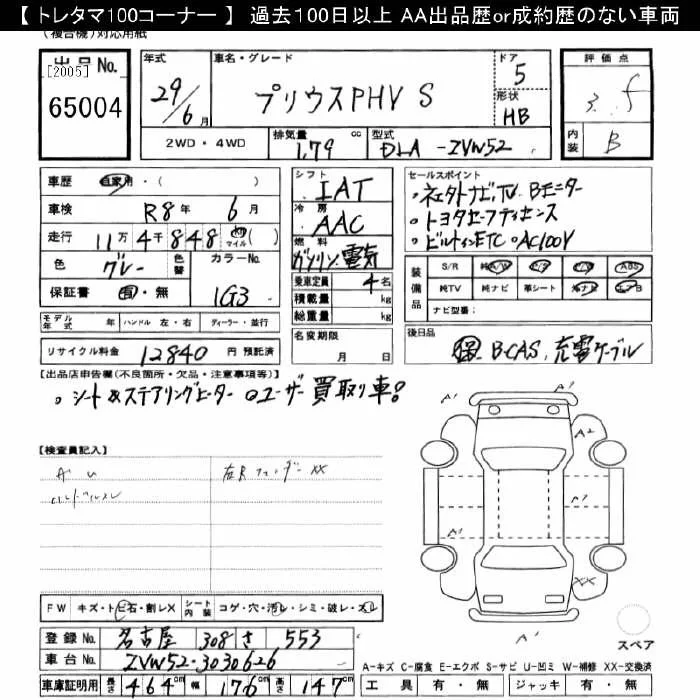 【 トレタマ100コーナー 】 過去100日以上 AA出品歴or成約歴のない車両
(複合機)対応用紙
出品No.
[2005]
65004
年式
29/6月
車名・グレード
プリウスPHV S
ドア
5
形状
HB
評価点
3. f
内装
B
2WD・4WD
排気量
1.79 cc
型式
DLA-ZVW52
車歴 自家用・( )
車検 R8年 6月
走行 11万4千848 km マイル( )
色 グレー 色替 カラーNo. 1G3
保証書 有・無
モデル年式 年 ハンドル 左・右 ディーラー・並行
リサイクル料金 12840 円 預託済
シフト IAT
冷房 AAC
燃料 ガソリン、電気
乗車定員 4名
積載量 kg
総重量 kg
名変期限
月 日
セールスポイント
。ネクストナビ、TV、Bモニター
。トヨタセーフティセンス
。ビルトインETC 。AC100V
装備品
S/R 純A/W P/S P/W ABS
純TV 純ナビ 革シート 社ナビ エアB
ナビ型番:
後日品
保、B-CAS、充電ケーブル
【出品店申告欄(不良箇所・欠品・注意事項等)】
。シート&ステアリングヒーター 。ユーザー買取り車。
【検査員記入】
A U
右Rフェンダー XX
A1
A1
A2
A1
A1
A1
XX
FW キズ・トビ石・割レX シート内装 コゲ・穴・汚レ・シミ・破レ・スレ
登録No. 名古屋 308 さ 553
車台No. ZVW52-3030626
車庫証明用 長さ 464cm 幅 176cm 高さ 147cm
スペア
A-キズ C-腐食 E-エクボ S-サビ U-凹ミ W-補修 XX-交換済
工具 有・無 ジャッキ 有・無